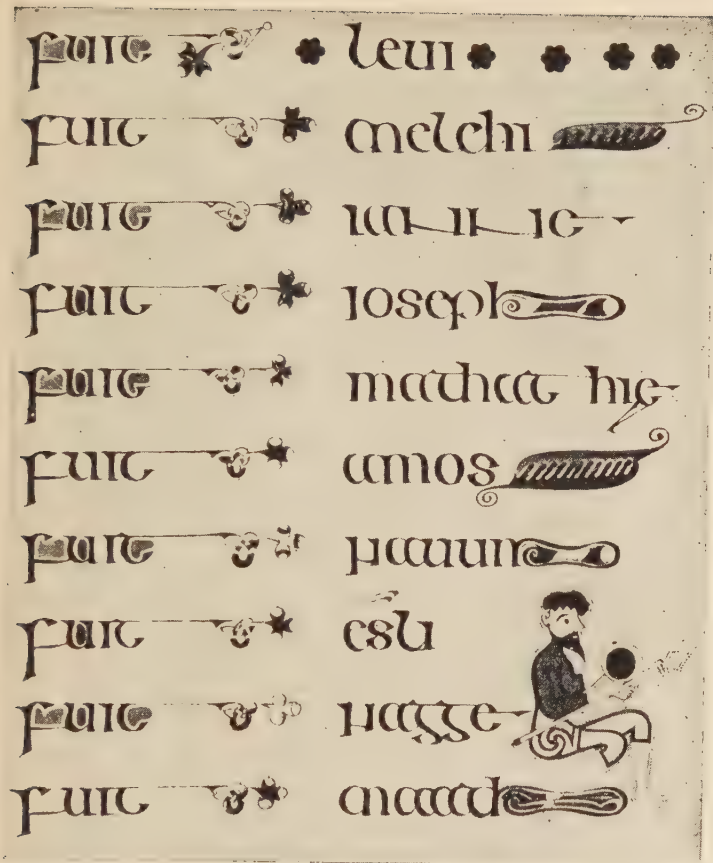 fuit levi
fuit melchi
fuit
fuit ioseph
fuit mathathie
fuit amos
fuit nauum
fuit esli
fuit nagge
fuit maath